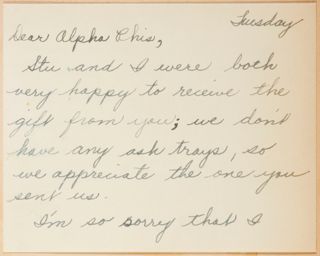 Tuesday
Dear Alpha Chis,
Stu and I were both
very happy to receive the
gift from you; we don't
have any ash trays, so
we appreciate the one you
sent us.
I'm so sorry that I